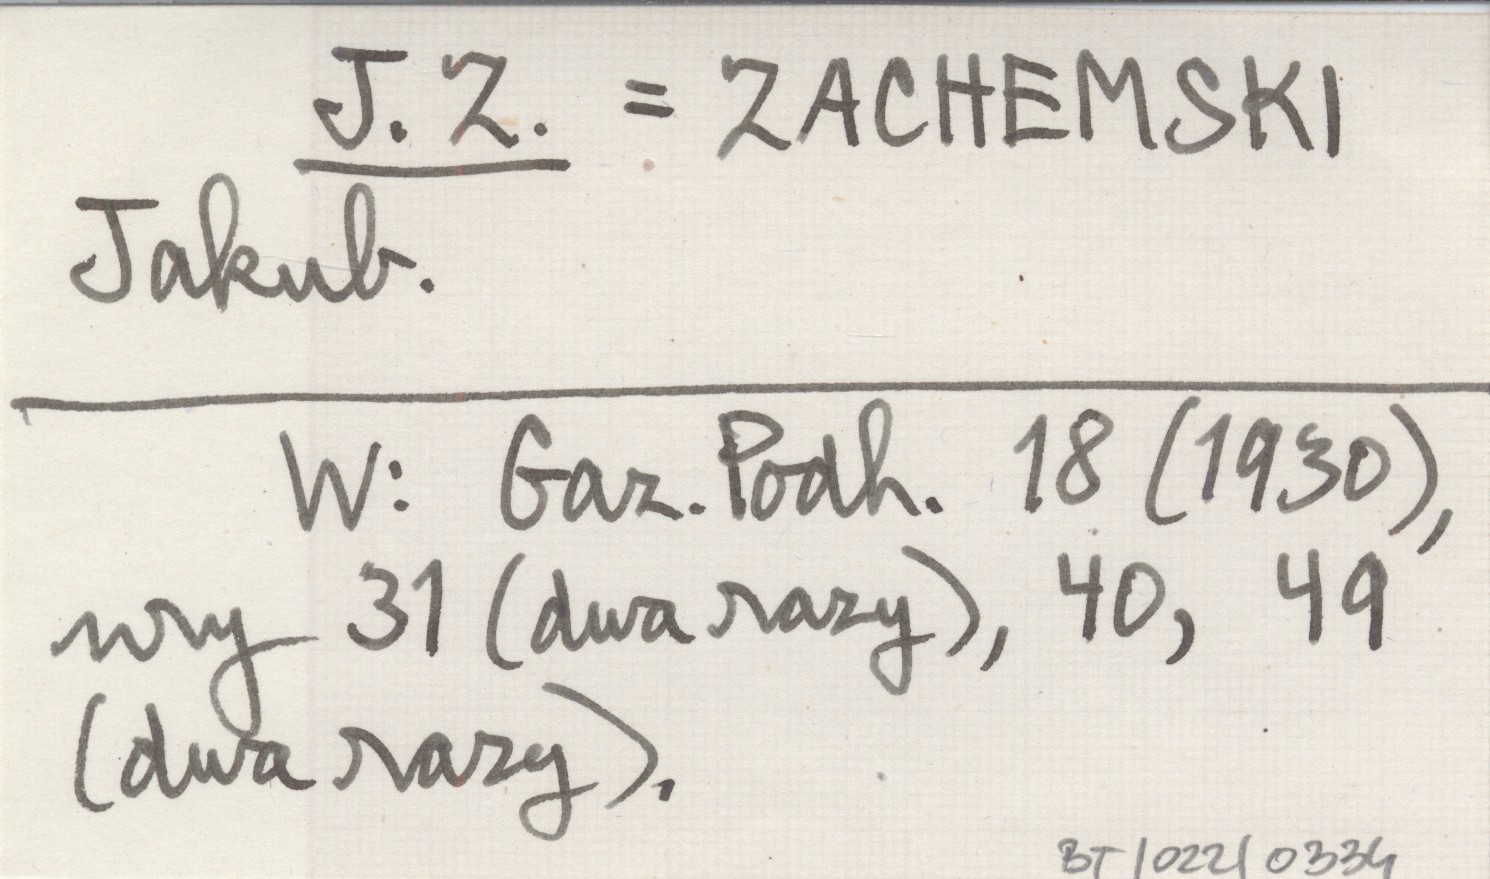 J. Z. = ZACHEMSKI
Jakub.
W: Gaz. Podh. 18 (1930),
nry 31 (dwa razy), 40, 49
(dwa razy).
BT/022/0334